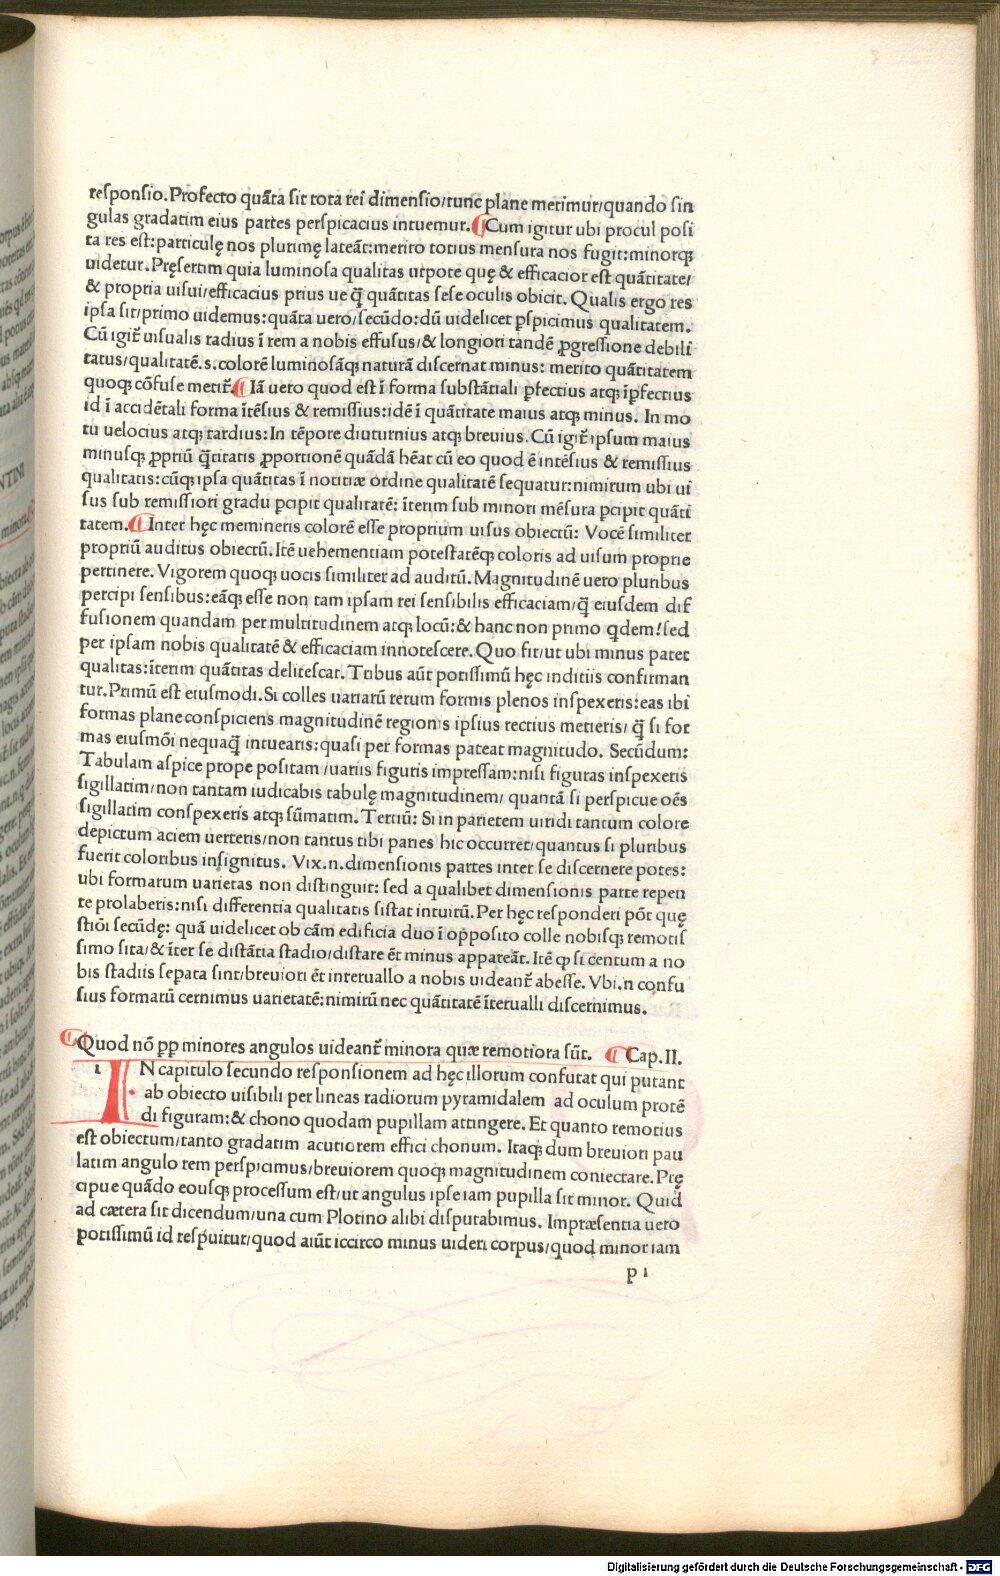 responsio. Profecto quãta sit tota rei dimensio/tunc plane metimur/quando sin
gulas gradatim eius partes perspicacius intuemur. ¶ Cum igitur ubi procul posi
ta res est: particulę nos plurimę lateãt: merito totius mensura nos fugit: minorq;
uidetur. Pręsertim quia luminosa qualitas utpote quę & efficacior est quãtitate/
& propria uisui/efficacius prius ue q̃ quãtitas sese oculis obicit. Qualis ergo res
ipsa sit/primo uidemus: quãta uero/secũdo: dũ uidelicet ꝑspicimus qualitatem.
Cũ igit᷑ uisualis radius ĩ rem a nobis effusus/& longiori tandẽ ꝓgressione debili
tatus/qualitatẽ.s.colorẽ luminosãq; naturã discernat minus: merito quãtitatem
quoq; cõfuse metit᷑. ¶ Iã uero quod est ĩ forma substãtiali ꝑfectius atq; ĩꝑfectius
id ĩ accidẽtali forma ĩtẽsius & remissius: idẽ ĩ quãtitate maius atq; minus. In mo
tu uelocius atq; tardius: In tẽpore diuturnius atq; breuius. Cũ igit᷑ ipsum maius
minusq; ꝓpriũ q̃titatis ꝓportionẽ quãdã hẽat cũ eo quod ẽ intẽsius & remissius
qualitatis: cũq; ipsa quãtitas ĩ notitiæ ordine qualitatẽ sequatur: nimirum ubi ui
sus sub remissiori gradu ꝑcipit qualitatẽ: ĩterim sub minori mẽsura ꝑcipit quãti
tatem. ¶ Inter hęc memineris colorẽ esse proprium uisus obiectũ: Vocẽ similiter
propriũ auditus obiectũ. Itẽ uehementiam potestatẽq; coloris ad uisum proprie
pertinere. Vigorem quoq; uocis similiter ad auditũ. Magnitudinẽ uero pluribus
percipi sensibus: eãq; esse non tam ipsam rei sensibilis efficaciam/q̃ eiusdem dif
fusionem quandam per multitudinem atq; locũ: & hanc non primo qdem! sed
per ipsam nobis qualitatẽ & efficaciam innotescere. Quo fit/ut ubi minus patet
qualitas: ĩterim quãtitas delitescat. Tribus aũt potissimũ hęc inditiis confirman
tur. Primũ est eiusmodi. Si colles uariarũ rerum formis plenos inspexeris: eas ibi
formas plane conspiciens magnitudinẽ regionis ipsius rectius metieris/ q̃ si for
mas eiusmõi nequaq̃ intuearis: quasi per formas pateat magnitudo. Secũdum:
Tabulam aspice prope positam/uariis figuris impressam: nisi figuras inspexeris
sigillatim/non tantam iudicabis tabulę magnitudinem/ quantã si perspicue oẽs
sigillatim conspexeris atq; sũmatim. Tertiũ: Si in parietem uiridi tantum colore
depictum aciem uerteris/non tantus tibi paries hic occurret/quantus si pluribus
fuerit coloribus insignitus. Vix.n.dimensionis partes inter se discernere potes:
ubi formarum uarietas non distinguit: sed a qualibet dimensionis parte repen
te prolaberis: nisi differentia qualitatis sistat intuitũ. Per hęc responderi põt quę
stiõi secũdę: quã uidelicet ob cãm edificia duo ĩ opposito colle nobisq; remotis
simo sita/& ĩter se distãtia stadio/distare ẽt minus appareãt. Itẽ ꝙ si centum a no
bis stadiis seꝑata sint/breuiori ẽt interuallo a nobis uideant᷑ abesse. Vbi.n confu
sius formarũ cernimus uarietatẽ: nimirũ nec quãtitatẽ ĩterualli discernimus.
¶ Quod nõ ꝓp minores angulos uideant᷑ minora quæ remotiora sũt. ¶ Cap.II.
1 IN capitulo secundo responsionem ad hęc illorum confutat qui putant
ab obiecto uisibili per lineas radiorum pyramidalem ad oculum protẽ
di figuram: & chono quodam pupillam attingere. Et quanto remotius
est obiectum/tanto gradatim acutiorem effici chonum. Itaq; dum breuiori pau
latim angulo rem perspicimus/breuiorem quoq; magnitudinem coniectare. Prę
cipue quãdo eousq; processum est/ut angulus ipse iam pupilla sit minor. Quid
ad cætera sit dicendum/una cum Plotino alibi disputabimus. Impræsentia uero
potissimũ id respuitur/quod aiũt iccirco minus uideri corpus/quod minor iam
p 1
Digitalisierung gefördert durch die Deutsche Forschungsgemeinschaft - DFG